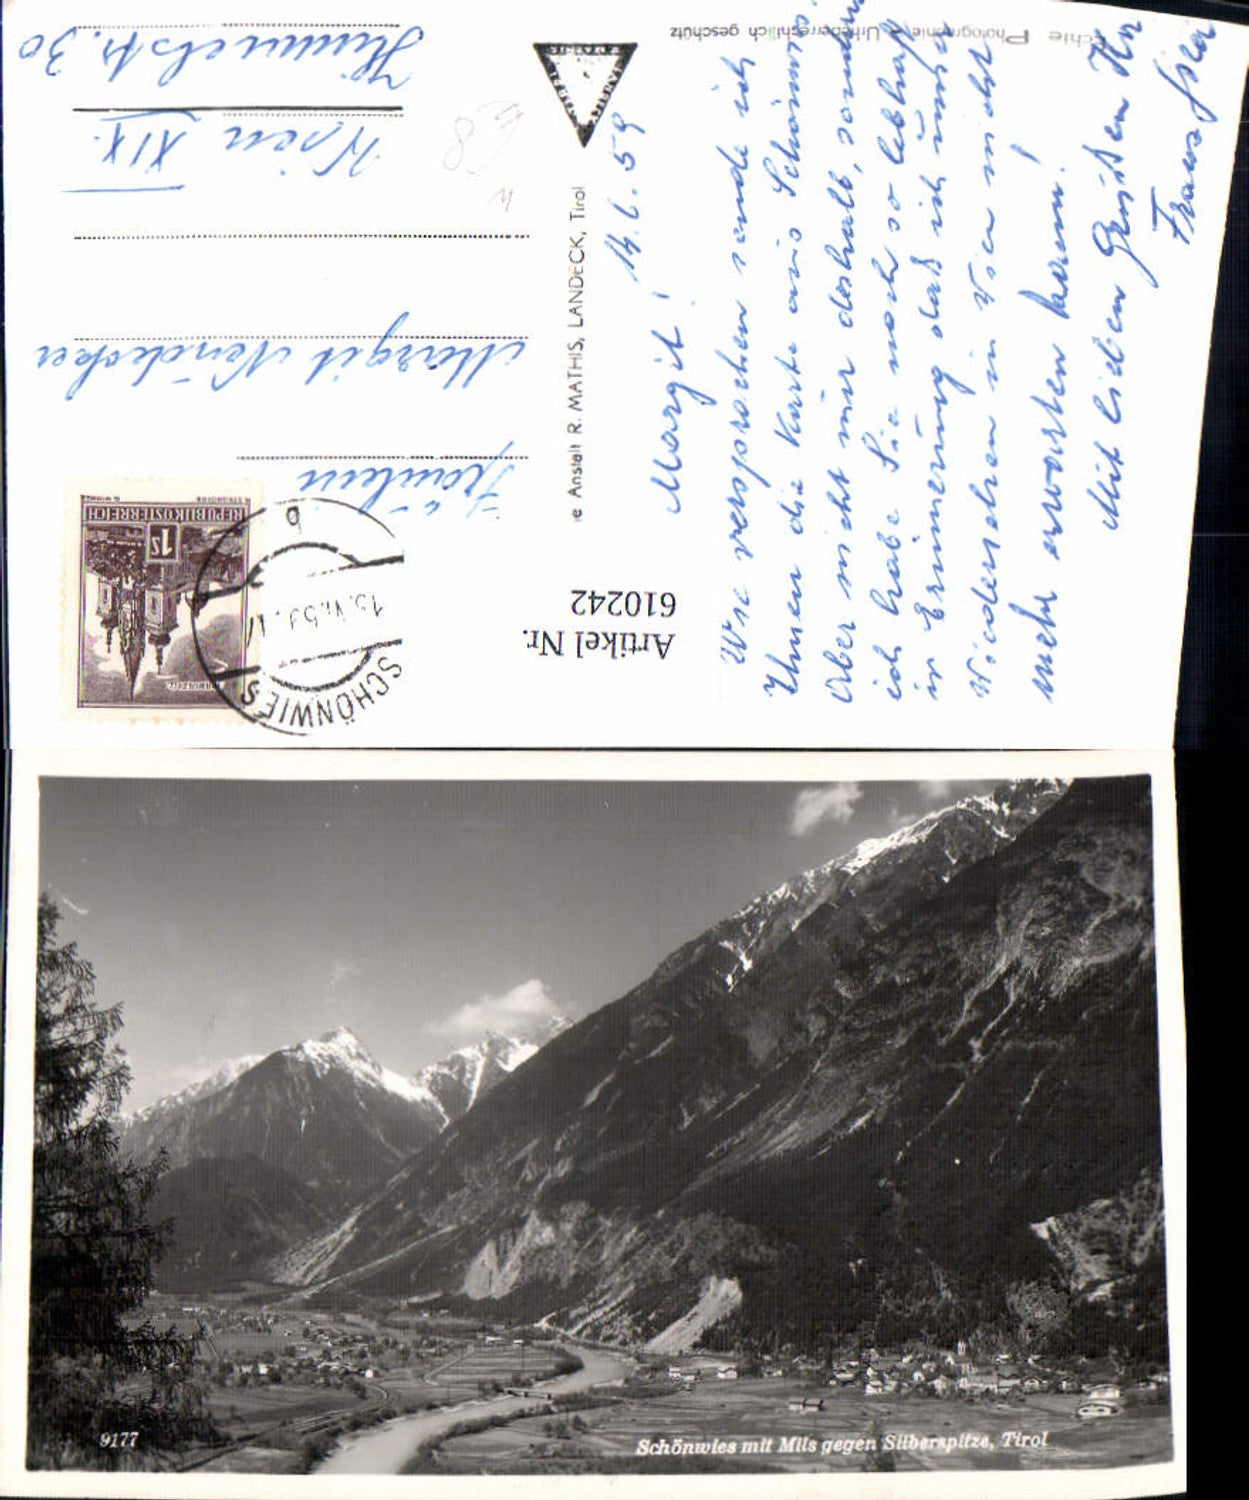 Echte Photographie
Urheberrechtlich geschützt
MATHIS
14.6.59
Margit!
Wie versprochen sende ich
Ihnen die Karte aus Schönwies.
Aber nicht nur deshalb, sondern
ich habe Sie noch so lebhaft
in Erinnerung daß ich unser
Wiedersehen in Wien nicht
mehr erwarten kann!
Mit lieben Grüßen Ihr
Franz
e Anstalt R. MATHIS, LANDECK, Tirol
SCHÖNWIES
15.VI.59
b
REPUBLIK ÖSTERREICH
1S
Fräulein
Margit
Wien XIX.
Himmelstr. 30
Artikel Nr.
610242
9177
Schönwies mit Mils gegen Silberspitze, Tirol